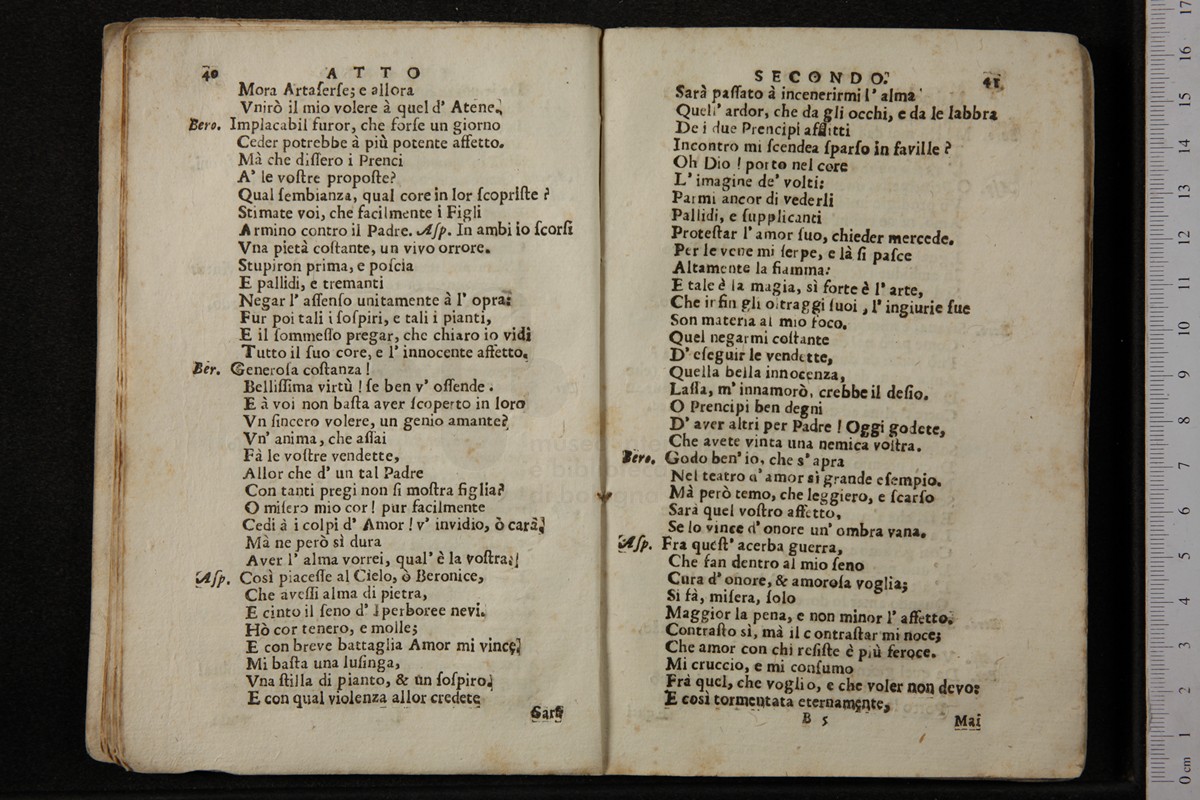 40 ATTO
Mora Artaſerſe; e allora
Vnirò il mio volere à quel d' Atene.
Bero. Implacabil furor, che forſe un giorno
Ceder potrebbe à più potente affetto.
Mà che diſſero i Prenci
A' le voſtre propoſte?
Qual ſembianza, qual core in lor ſcopriſte ?
Stimate voi, che facilmente i Figli
Armino contro il Padre. Aſp. In ambi io ſcorſi
Vna pietà coſtante, un vivo orrore.
Stupiron prima, e poſcia
E pallidi, e tremanti
Negar l' aſſenſo unitamente à l' opra:
Fur poi tali i ſoſpiri, e tali i pianti,
E il ſommeſſo pregar, che chiaro io vidi
Tutto il ſuo core, e l' innocente affetto.
Ber. Generoſa coſtanza !
Belliſſima virtù ! ſe ben v' offende .
E à voi non baſta aver ſcoperto in loro
Vn ſincero volere, un genio amante?
Vn' anima, che aſſai
Fà le voſtre vendette,
Allor che d' un tal Padre
Con tanti pregi non ſi moſtra figlia?
O miſero mio cor ! pur facilmente
Cedi à i colpi d' Amor ! v' invidio, ò cara,
Mà ne però sì dura
Aver l' alma vorrei, qual' è la voſtra.
Aſp. Così piaceſſe al Cielo, ò Beronice,
Che aveſſi alma di pietra,
E cinto il ſeno d' Iperboree nevi.
Hò cor tenero, e molle;
E con breve battaglia Amor mi vince,
Mi baſta una luſinga,
Vna ſtilla di pianto, & un ſoſpiro,
E con qual violenza allor credete
Sarà
SECONDO. 41
Sarà paſſato à incenerirmi l' alma
Quell' ardor, che da gli occhi, e da le labbra
De i due Prencipi afflitti
Incontro mi ſcendea ſparſo in faville ?
Oh Dio ! porto nel core
L' imagine de' volti:
Parmi ancor di vederli
Pallidi, e ſupplicanti
Proteſtar l' amor ſuo, chieder mercede.
Per le vene mi ſerpe, e là ſi paſce
Altamente la fiamma:
E tale è la magia, sì forte è l' arte,
Che infin gli oltraggi ſuoi , l' ingiurie ſue
Son materia al mio foco.
Quel negarmi coſtante
D' eſeguir le vendette,
Quella bella innocenza,
Laſſa, m' innamorò, crebbe il deſio.
O Prencipi ben degni
D' aver altri per Padre ! Oggi godete,
Che avete vinta una nemica voſtra.
Bero. Godo ben' io, che s' apra
Nel teatro d' amor sì grande eſempio.
Mà però temo, che leggiero, e ſcarſo
Sarà quel voſtro affetto,
Se lo vince d' onore un' ombra vana.
Aſp. Fra queſt' acerba guerra,
Che fan dentro al mio ſeno
Cura d' onore, & amoroſa voglia;
Si fà, miſera, ſolo
Maggior la pena, e non minor l' affetto.
Contraſto sì, mà il contraſtar mi noce;
Che amor con chi reſiſte è più feroce.
Mi cruccio, e mi conſumo
Frà quel, che voglio, e che voler non devo:
E così tormentata eternamente,
B 5 Mai